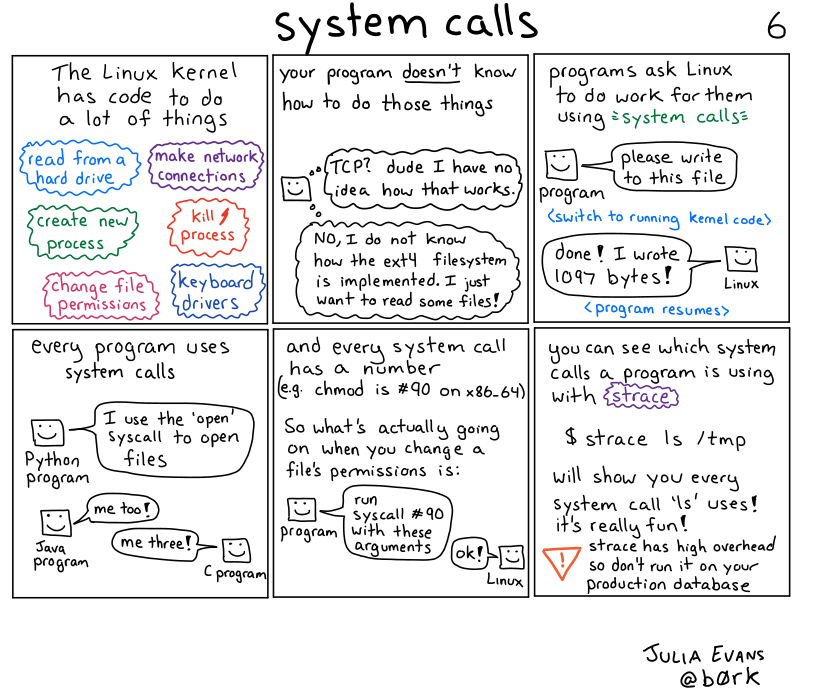 system calls
6
The Linux Kernel
has code to do
a lot of things
read from a
hard drive
make network
connections
create new
process
kill
process
change file
permissions
keyboard
drivers
your program doesn't know
how to do those things
TCP? dude I have no
idea how that works.
NO, I do not know
how the ext4 filesystem
is implemented. I just
want to read some files!
programs ask Linux
to do work for them
using =system calls=
please write
to this file
program
<switch to running kernel code>
done! I wrote
1097 bytes!
Linux
<program resumes>
every program uses
system calls
I use the 'open'
syscall to open
files
Python
program
me too!
Java
program
me three!
C program
and every system call
has a number
(e.g. chmod is #90 on x86_64)
So what's actually going
on when you change a
file's permissions is:
run
syscall #90
with these
arguments
program
ok!
Linux
you can see which system
calls a program is using
with strace
$ strace ls /tmp
will show you every
system call 'ls' uses!
it's really fun!
!
strace has high overhead
so don't run it on your
production database
JULIA EVANS
@b0rk